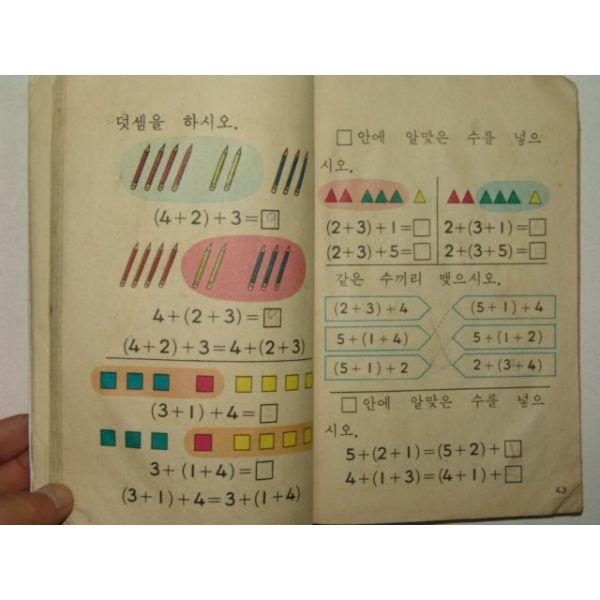 덧셈을 하시오.
(4+2)+3=□
4+(2+3)=□
(4+2)+3=4+(2+3)
(3+1)+4=□
3+(1+4)=□
(3+1)+4=3+(1+4)
□ 안에 알맞은 수를 넣으
시오.
(2+3)+1=□
(2+3)+5=□
2+(3+1)=□
2+(3+5)=□
같은 수끼리 맺으시오.
(2+3)+4 (5+1)+4
5+(1+4) 5+(1+2)
(5+1)+2 2+(3+4)
□ 안에 알맞은 수를 넣으
시오.
5+(2+1)=(5+2)+□
4+(1+3)=(4+1)+□
43